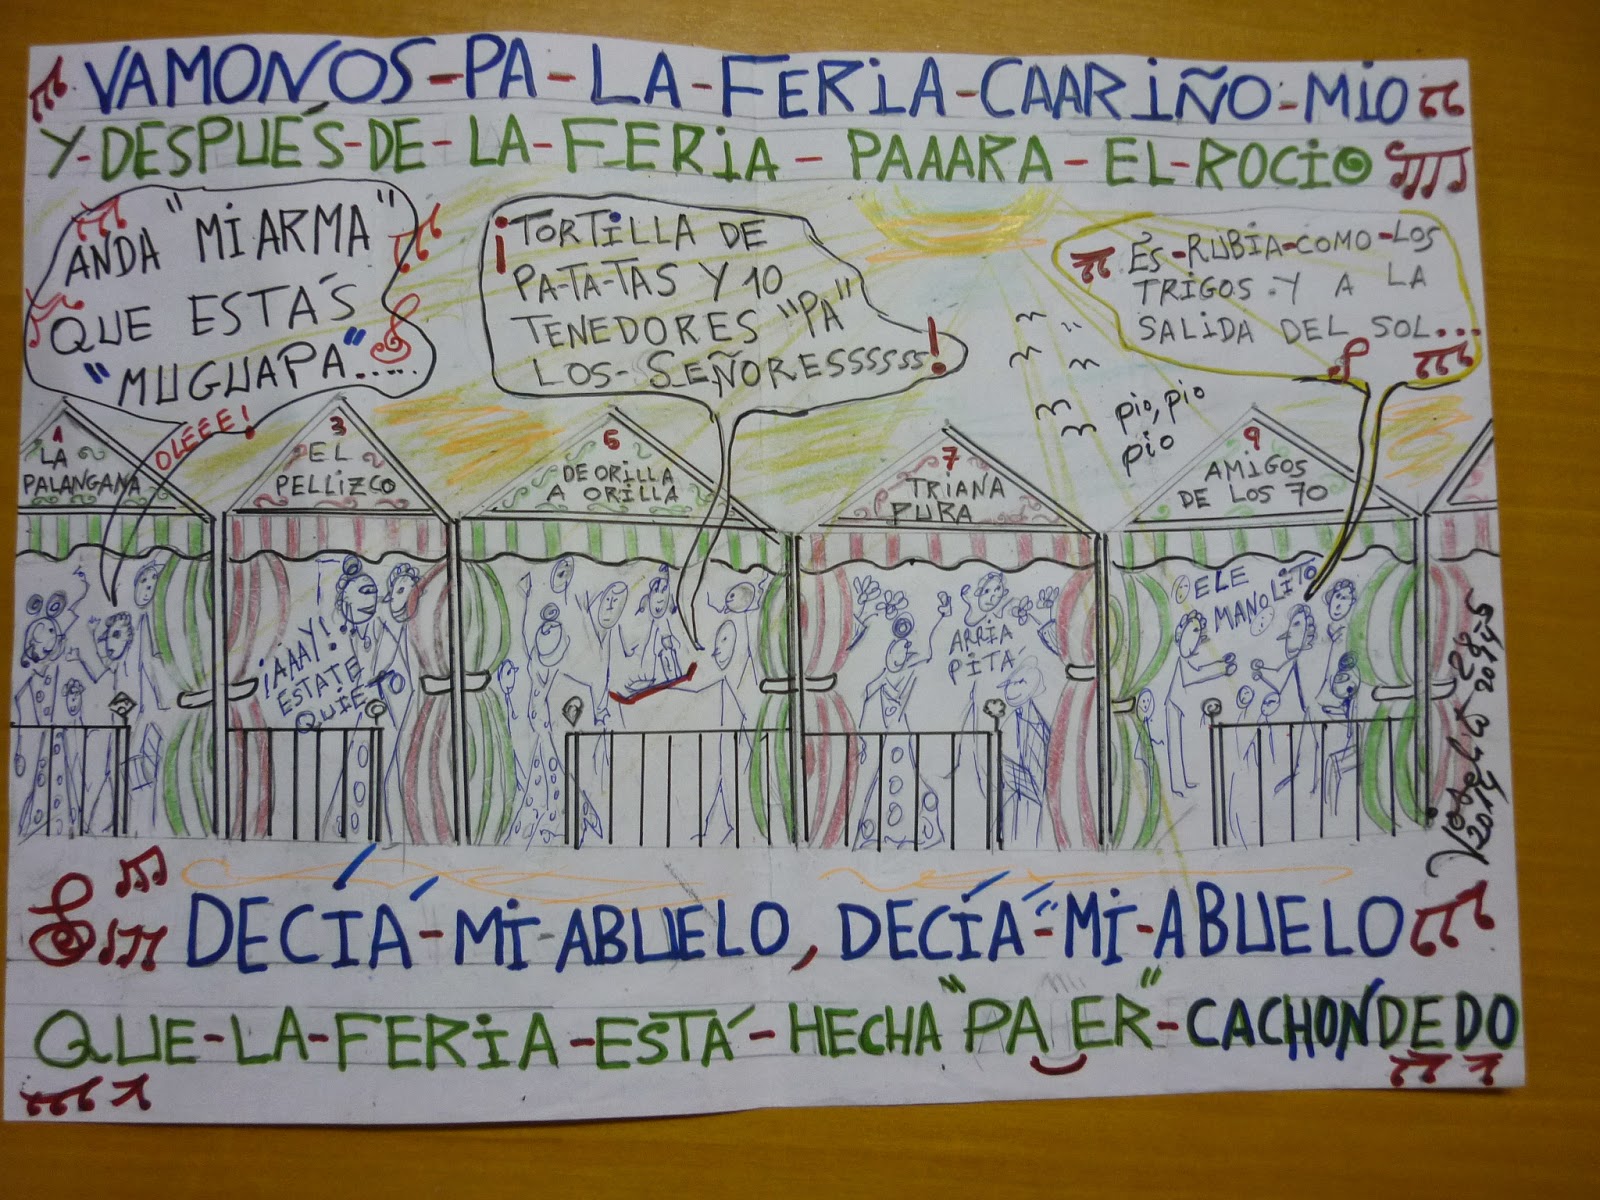 VAMONOS-PA-LA-FERIA-CAARIÑO-MIO
Y-DESPUÉS-DE-LA-FERIA-PAAARA-EL-ROCIO
ANDA "MI ARMA"
QUE ESTÁS
"MUGUAPA".....
OLEEE!
¡TORTILLA DE
PA-TA-TAS Y 10
TENEDORES "PA"
LOS-SEÑORESSSSSS!
ES-RUBIA-COMO-LOS
TRIGOS.Y A LA
SALIDA DEL SOL...
pio, pio
pio
1
LA
PALANGANA
3
EL
PELLIZCO
5
DE ORILLA
A ORILLA
7
TRIANA
PURA
9
AMIGOS
DE LOS 70
¡AAAY!
ESTATE
QUIETO
ARRIA
PITÁ
ELE
MANOLITO
2014
DECÍA-MI-ABUELO, DECÍA-MI-ABUELO
QUE-LA-FERIA-ESTÁ-HECHA "PA ER"-CACHONDEDO